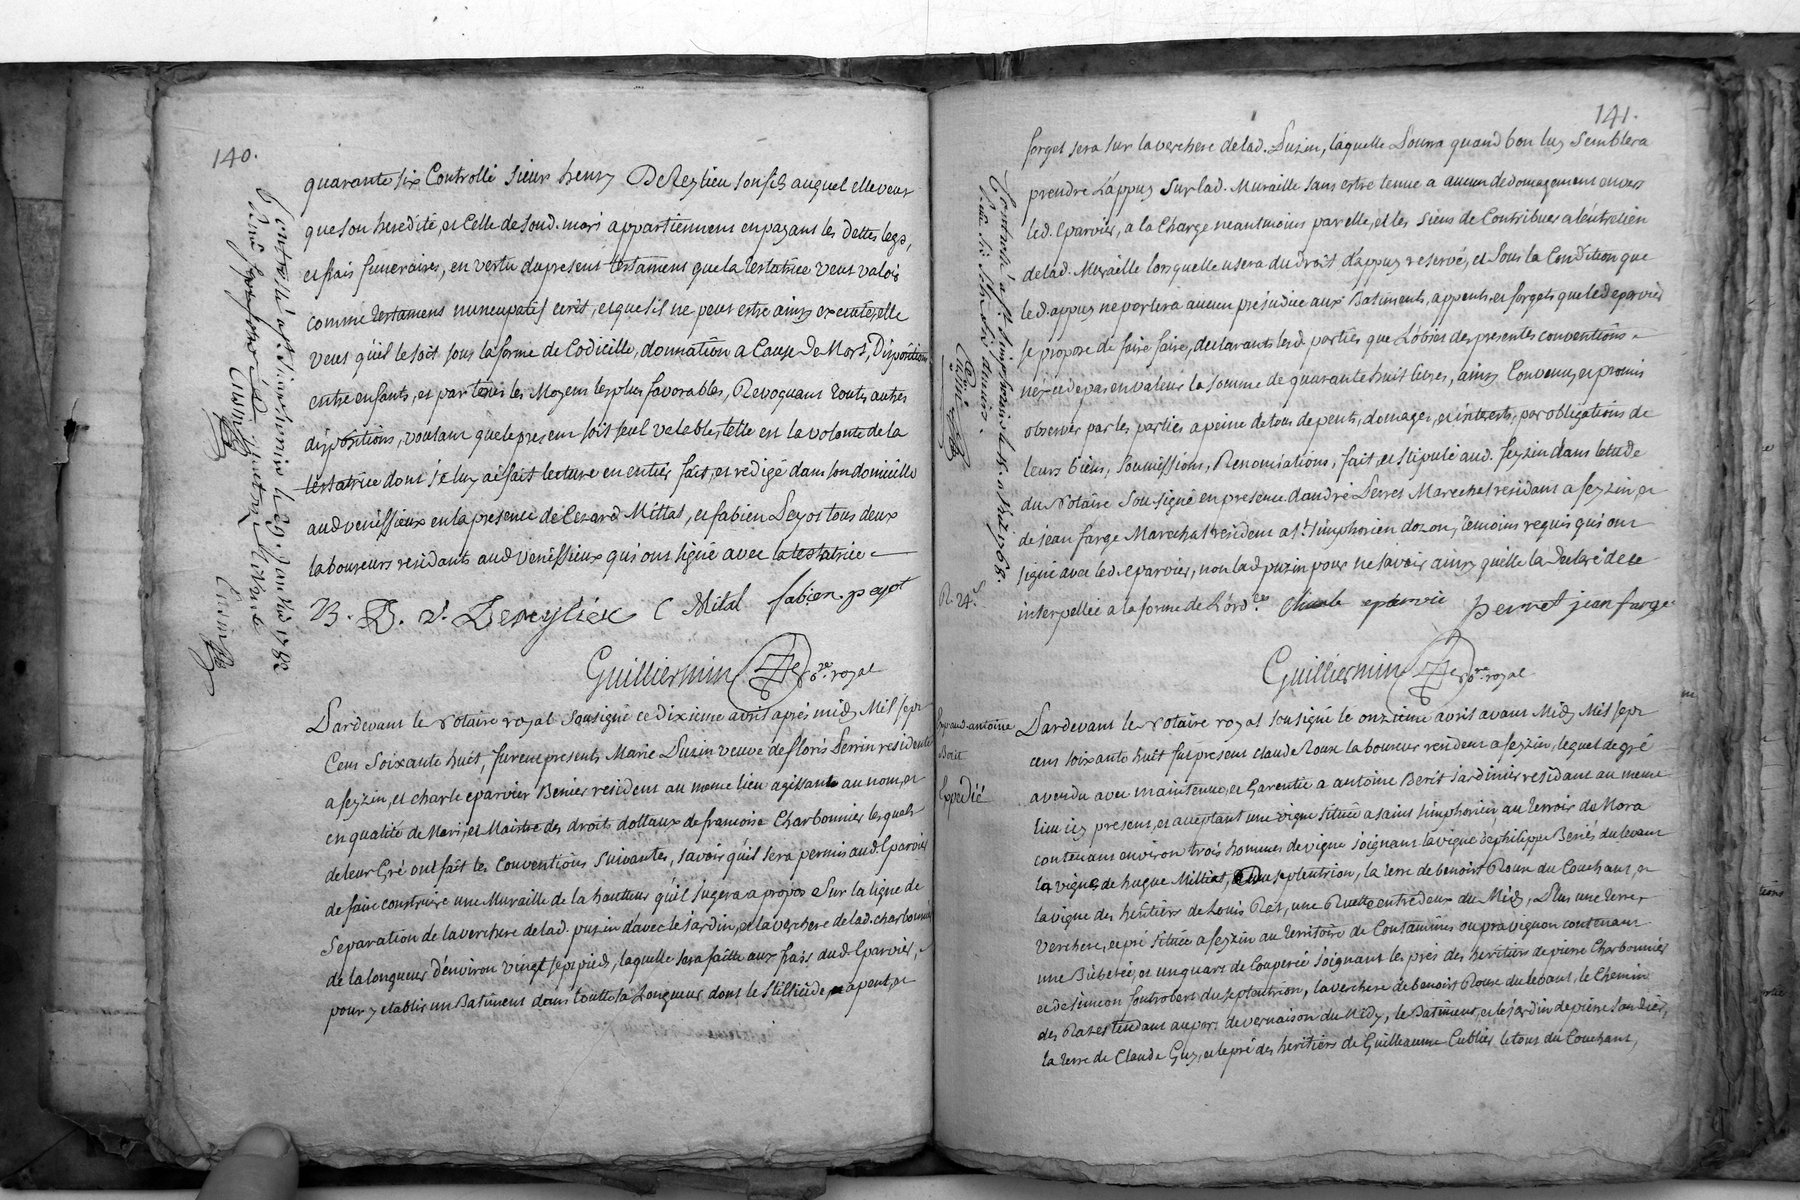 140.
quarante six Controllé sieur henry DeReylieu son fils auquel elle veut
que son heredité, et Celle de soud. mari appartiennent en payant les dettes legs,
et frais funeraires, en vertu du present testament que la testatrice veut valoir
comme testament nuncupatif ecrit, et que s'il ne peut estre ainsy executé, elle
veut qu'il le soit sous la forme de Codicille, donnation a Cause de Mort, Disposition
entre enfants, et par tous les Moyens les plus favorables, Revoquant toutes autres
dispositions, voulant que le present soit seul valable, telle est la volonté de la
testatrice dont j'e luy ai fait lecture en entier fait, et redigé dans son domicille
aud venissieux en la presence de Cezard Mittal, et fabien Peyot tous deux
laboureurs residants aud venissieux qui ont signé avec la testatrice
C Mital fabien peyot
Guilliermin nre. royal
Pardevant le Notaire royal sousigné ce dixieme avril après midy Mil sept
Cent Soixante huit, furent presents Marie Puzin veuve de floris Perrin residente
a feyzin, et charle eparvier Benier resident au meme lieu agissant au nom, et
en qualité de Mari, et Maistre des droits dottaux de francoise Charbonnier lesquels
de leur Gré ont fait les Conventions suivantes, savoir qu'il sera permis aud. Eparvier
de faire construire une Muraille de la hautteur qu'il jugera a propos sur la ligne de
Separation de la verchere de lad. puzin d'avec le jardin, et la verchere de lad. charbonnier
de la longueur d'environ vingt sept pieds, laquelle sera faitte aux frais dud. Eparvier,
pour y etablir un Batiment dans toutte sa Longueur, dont le Stillicide, et apent, et
141.
forget sera sur la verchere de lad. Puzin, laquelle Pourra quand bon luy Semblera
prendre L'appuy sur lad. Muraille sans estre tenue a aucun dedomagement envers
led. Eparvier, a la Charge neantmoins par elle, et les siens de Contribuer a l'entretien
de lad. Muraille lorsquelle usera du droit d'appuy reservé, et sous la Condition que
led. appuy ne portera aucun prejudice aux Batiments, appents, et forgets que led eparvier
se propose de faire faire, declarants lesd. parties que L'objet des presentes conventions
n'excede pas en valeur la somme de quarante huit livres, ainsy Convenu, et promis
observer par les parties a peine de tous depents, domages, et interets, par obligations de
leurs biens, Soumissions, Renonciations, fait, et stipulé aud. feyzin dans l'etude
du Notaire Sousigné en presence d'andré Perret Marechal residant a feyzin, et
de jean farge Marechal resident a St. Simphorien dozon, temoins requis qui ont
signé avec led. eparvier, non lad puzin pour ne savoir ainsy quelle la Declaré de ce
interpellée a la forme de L'ord.ce Charle eparvie perret jean farge
R. 24s
Guilliermin nre. royal
antoine
Berit
Expedié
Pardevant le Notaire royal sousigné le onzieme avril avant Midy Mil sept
cent soixante huit fut present claude Roux laboureur resident a feyzin, lequel de gré
a vendu avec maintenue, et Garentie a antoine Berit jardinier residant au meme
lieu icy present, et acceptant une vigne située a saint simphorien au terroir de Mora
contenant environ trois hommes de vigne joignant la vigne de philippe Beniés du levant
la vigne de hugue Milliat, du septentrion, la terre de benoist Roux du Couchant, et
la vigne des heritiers de Louis Rét, une Ruette entredeux du Midy, Plus une terre,
verchere, et pré située a feyzin au territoire de Contamines ou pravignon contenant
une Bicherée, et un quart de Couperée joignant les prés des heritiers de pierre Charbonnier
et de simeon fontrobert du septentrion, la verchere de benoist Roux du levant, le Chemin
des Razes tendant au port de vernaison du Midy, le Batiment, et le jardin de pierre
la terre de Claude Guy, et le pré des heritiers de Guilleaume Cublier le tout du Couchant,